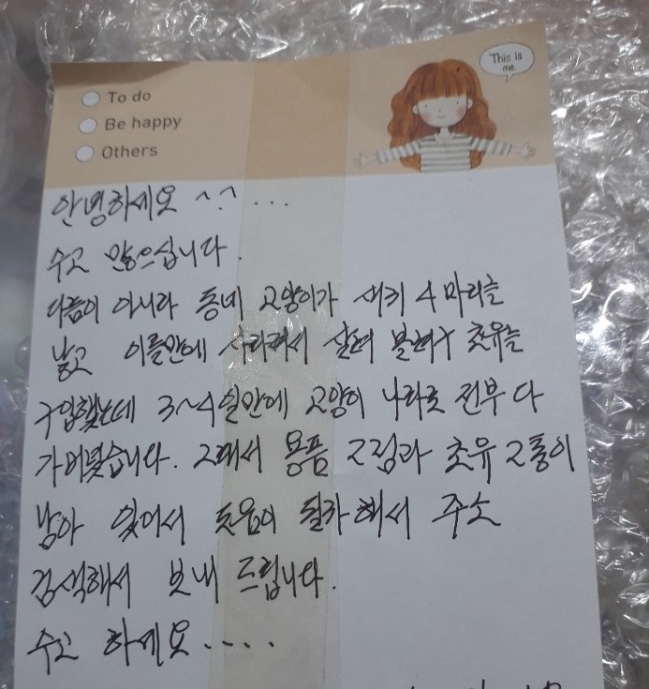 This is
me
To do
Be happy
Others
안녕하세요 ^.^ ...
수고 많으십니다.
다름이 아니라 동네 고양이가 새끼 4마리를
낳고 이틀만에 사라져서 살려 볼려구 초유를
구입했는데 3~4일만에 고양이 나라로 전부 다
가버렸습니다. 그래서 용품 2점과 초유 2통이
남아 있어서 도움이 될까 해서 주소
검색해서 보내 드립니다.
수고 하세요....